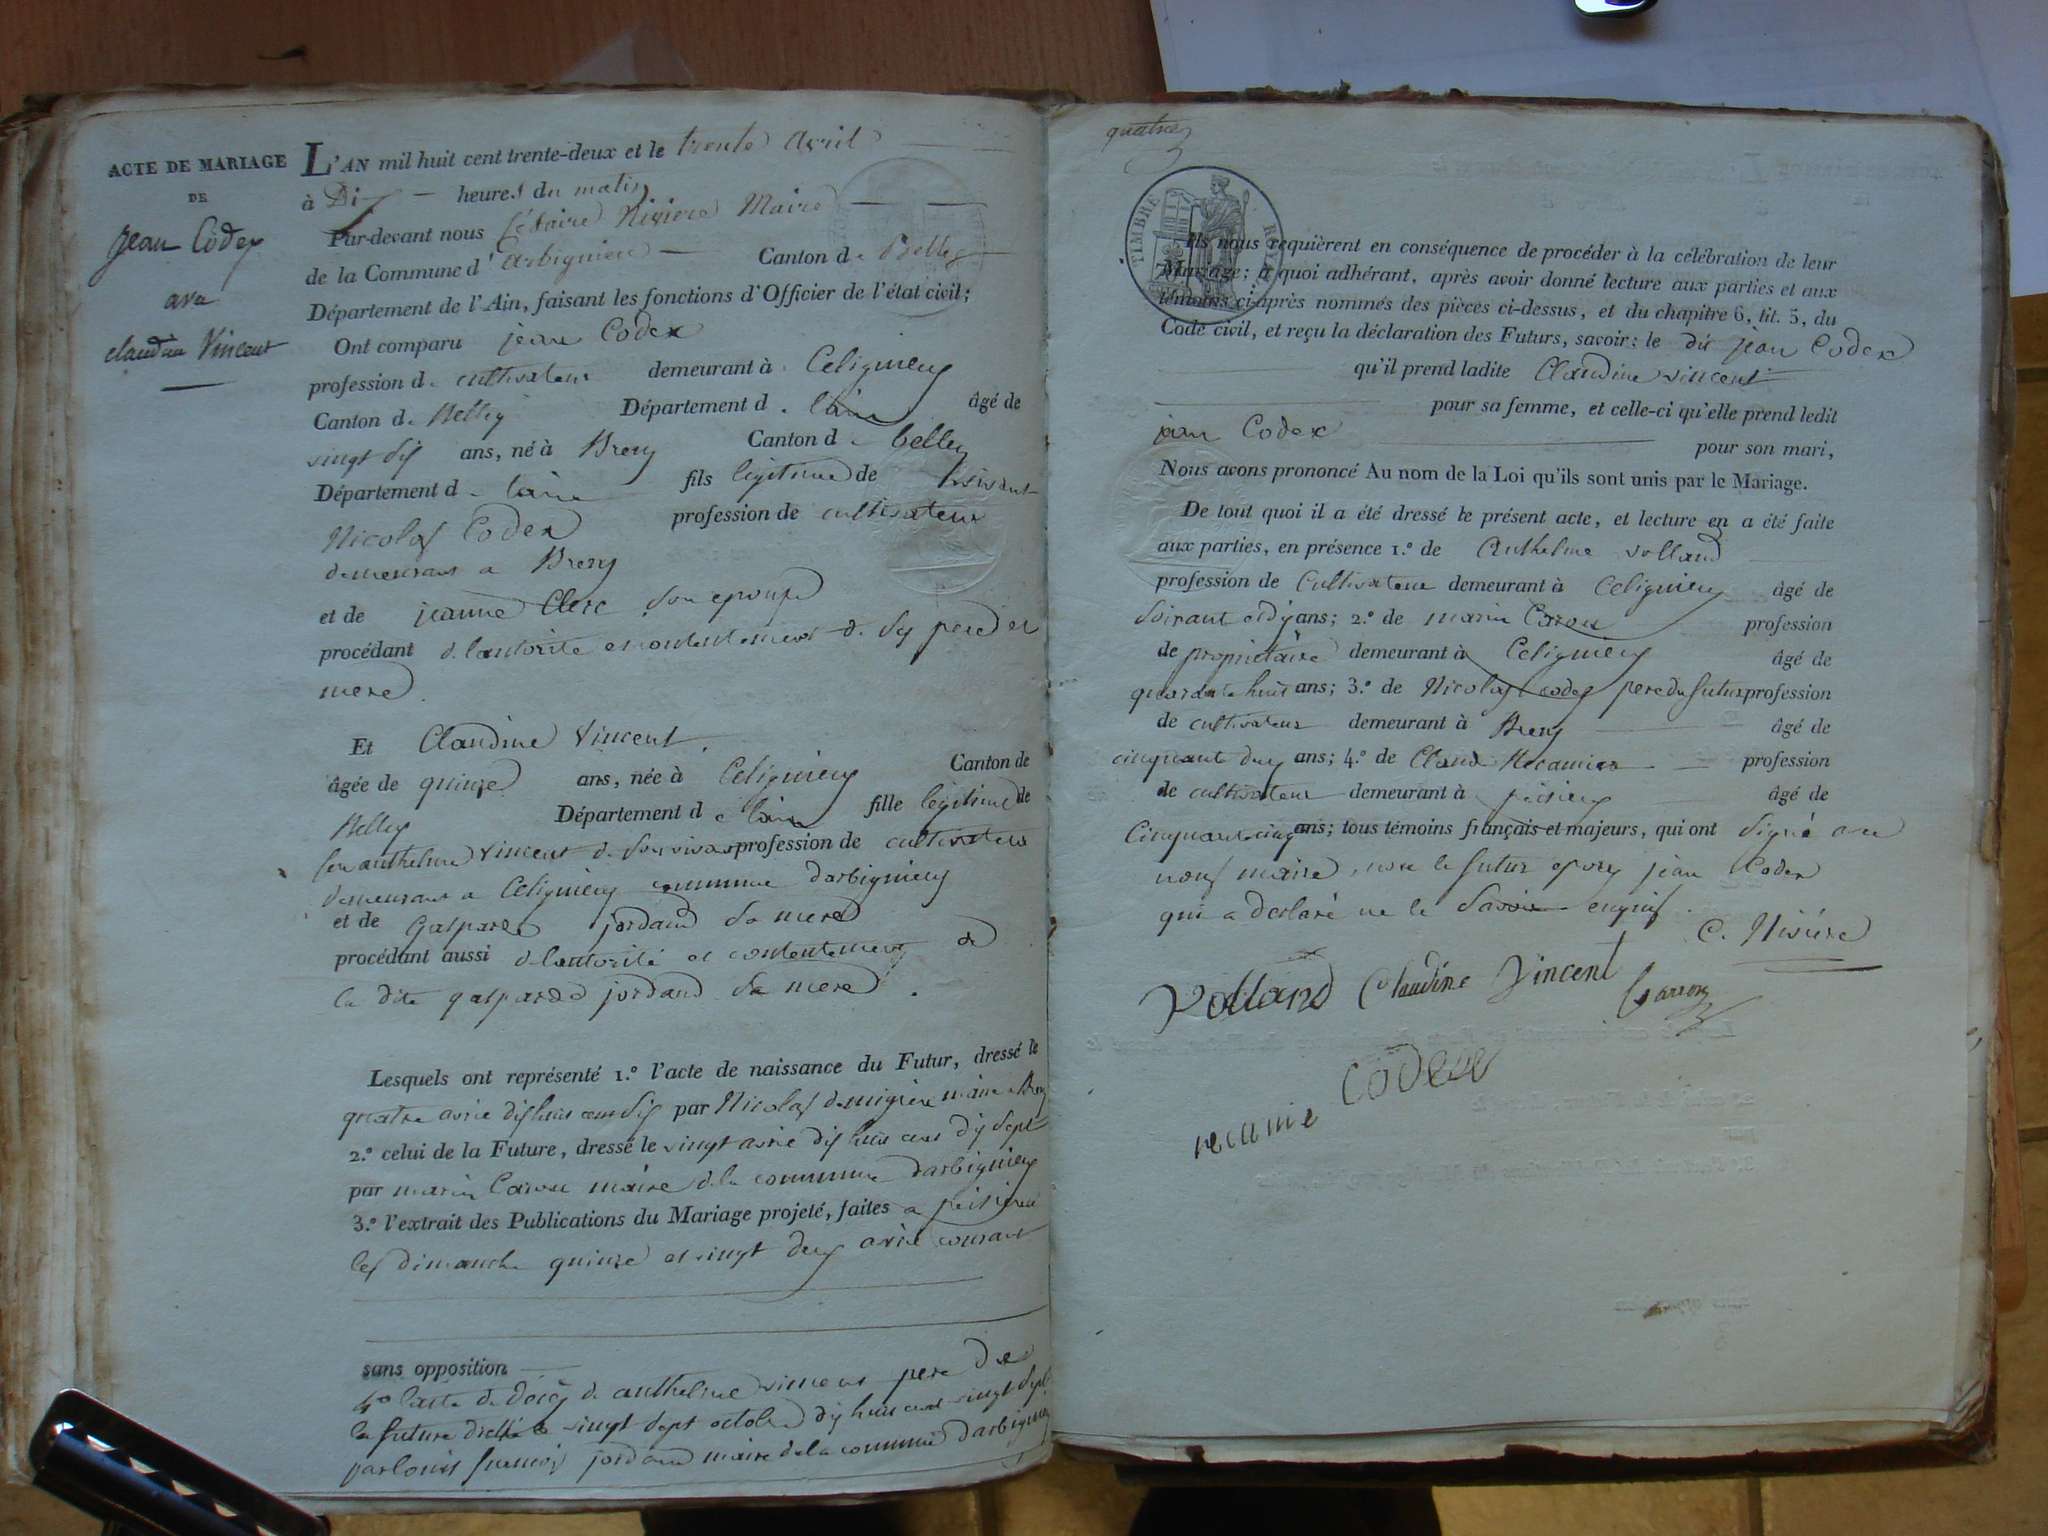 ACTE DE MARIAGE
DE
jean Codex
avec
claudine Vincent
L'AN mil huit cent trente-deux et le trente avril
à Dix heures du matin
Par-devant nous Cétaire Nivière Maire
de la Commune d'arbignieu Canton de Belley
Département de l'Ain, faisant les fonctions d'Officier de l'état civil;
Ont comparu jean Codex
profession de cultivateur demeurant à Celignieu
Canton de Belley Département d. lain âgé de
vingt six ans, né à Breny Canton de belley
Département de lain fils legitime de vivant
Nicolas Codex profession de cultivateur
demeurant a Breny
et de jeanne Clerc son epouse
procédant de lautorité et contentement de ses pere et
mere
Et Claudine Vincent
âgée de quinze ans, née à Celignieu Canton de
Belley Département de lain fille legitime de
feu anthelme Vincent de son vivant profession de cultivateur
demeurant a Celignieu commune darbignieu
et de Gasparde jordand sa mere
procédant aussi de lautorité et contentement de
la dite gasparde jordand sa mere.
Lesquels ont représenté 1.º l'acte de naissance du Futur, dressé le
quatre avril dix huit cent six par Nicolas demigiere maire a Breny
2.º celui de la Future, dressé le vingt avril dix huit cent dix sept
par marin Carron maire de la commune darbignieu
3.º l'extrait des Publications du Mariage projeté, faites a peisieu
les dimanche quinze et vingt deux avril courant
sans opposition
4º lacte de décès de anthelme vincent pere de
la future dressé le vingt sept octobre dix huit cent vingt sept
par louis francois jordand maire de la commune darbignieu
quatre
TIMBRE ROYAL
Ils nous requièrent en conséquence de procéder à la célébration de leur
Mariage: à quoi adhérant, après avoir donné lecture aux parties et aux
témoins ci-après nommés des pièces ci-dessus, et du chapitre 6, tit. 5, du
Code civil, et reçu la déclaration des Futurs, savoir: le dit jean Codex
qu'il prend ladite Claudine vincent
pour sa femme, et celle-ci qu'elle prend ledit
jean Codex pour son mari,
Nous avons prononcé Au nom de la Loi qu'ils sont unis par le Mariage.
De tout quoi il a été dressé le présent acte, et lecture en a été faite
aux parties, en présence 1.º de Anthelme volland
profession de Cultivateur demeurant à Celignieu âgé de
soixant et dix ans; 2.º de marin Carron profession
de propriétaire demeurant à Celignieu âgé de
quarante huit ans; 3.º de Nicolas codex pere du futur profession
de cultivateur demeurant à Breny âgé de
cinquante deux ans; 4.º de Claude Recamier profession
de cultivateur demeurant à peisieu âgé de
Cinquante cinq ans; tous témoins français et majeurs, qui ont signé avec
nous maire, non le futur epoux jean Codex
qui a déclaré ne le savoir enquis.
C. Nivière
Volland Claudine Vincent Carron
Codex
recamie